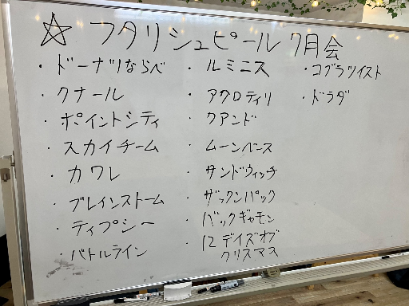 ☆ フタリシュピール 7月会
・ドーナツならべ
・クナール
・ポイントシティ
・スカイチーム
・カワレ
・ブレインストーム
・ティプシー
・バトルライン
・ルミニス
・アクロティリ
・クアンド
・ムーンベース
・サンドウィッチ
・ザックンパック
・バックギャモン
・12デイズオブ
クリスマス
・コブラツイスト
・ドラダ